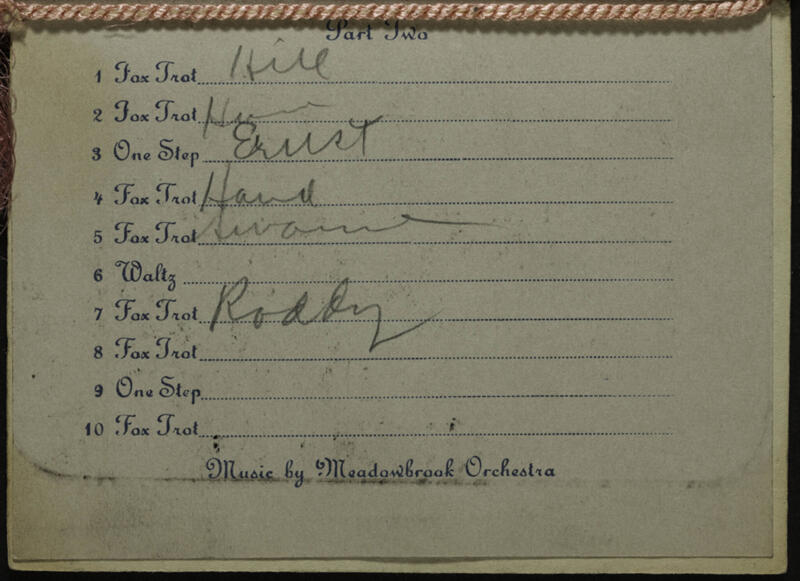 Part Two
1 Fox Trot Hill
2 Fox Trot
3 One Step Ernst
4 Fox Trot Hand
5 Fox Trot
6 Waltz
7 Fox Trot Roddy
8 Fox Trot
9 One Step
10 Fox Trot
Music by Meadowbrook Orchestra